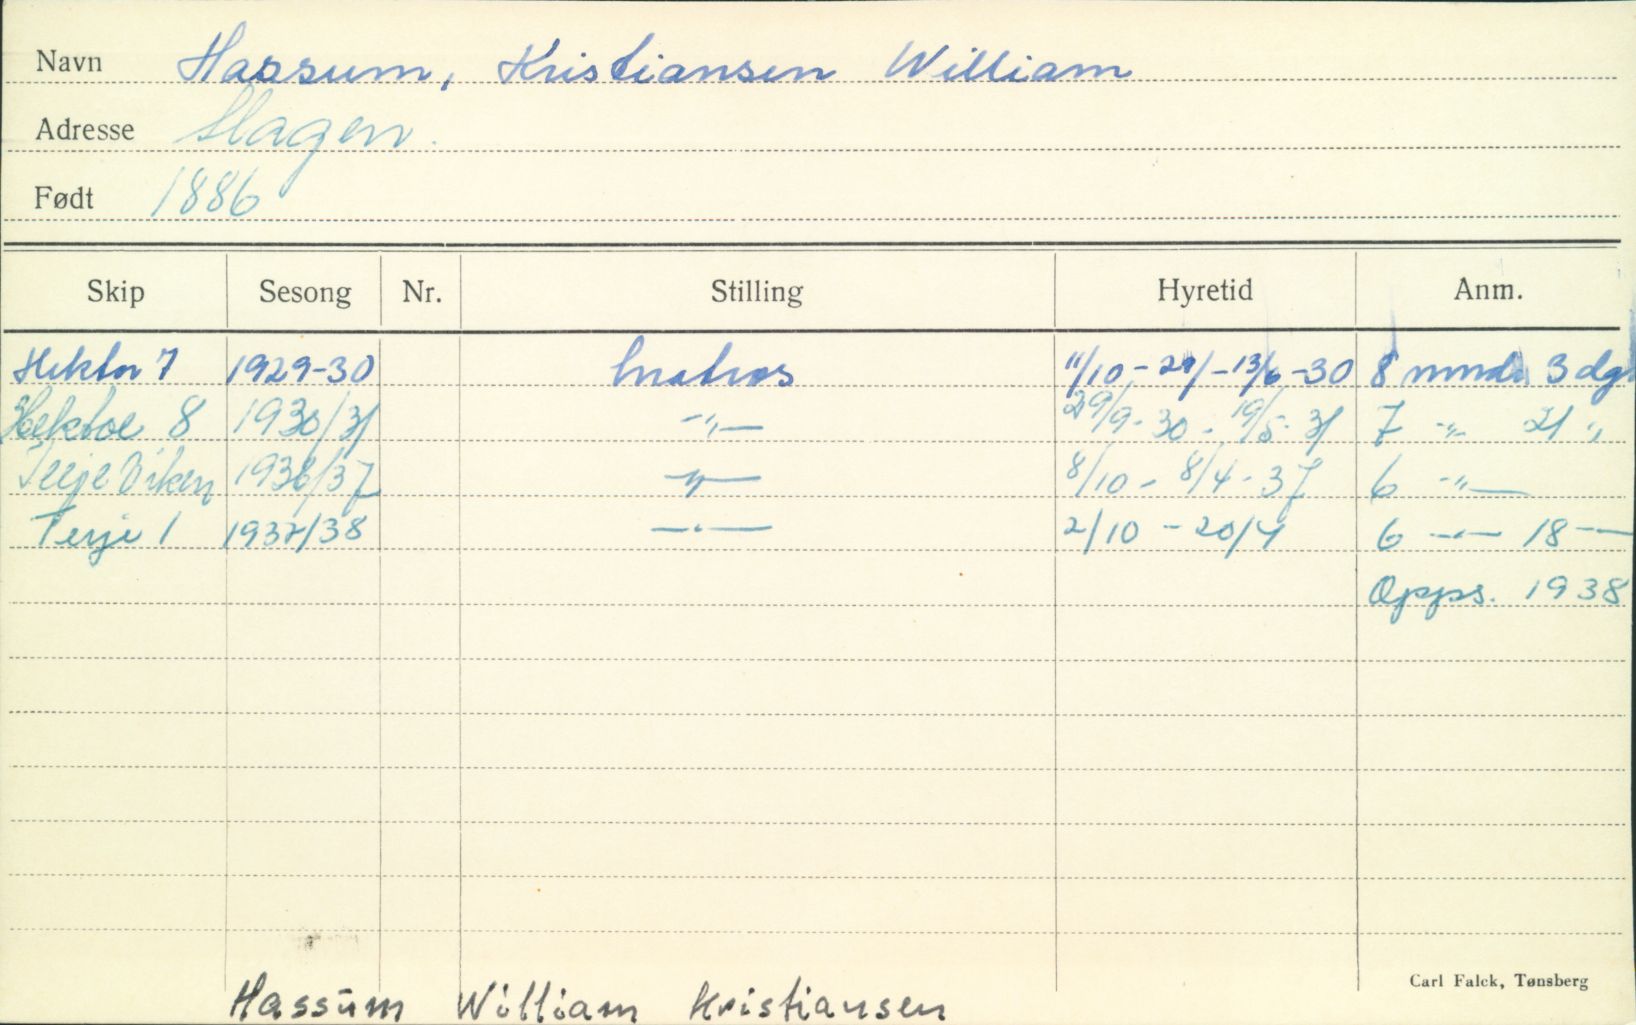 Navn Hassum, Kristiansen William
Adresse Slagen.
Født 1886
Skip Sesong Nr. Stilling Hyretid Anm.
Hektor 7 1929-30 Matros 11/10 - 29/ - 13/6 - 30 8 mnd. 3 dg
Hektor 8 1930/31 -"- 29/9 - 30 - 19/5 - 31 7 -"- 21 "
Terje Viken 1936/37 -"- 8/10 - 8/4 - 37 6 -"-
Terje 1 1937/38 -"- 2/10 - 20/4 6 -"- 18 -"-
Opps. 1938
Carl Falck, Tønsberg
Hassum William Kristiansen